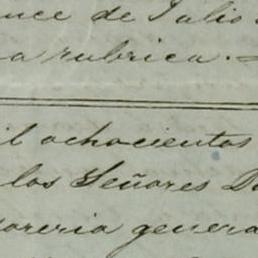 once de Julio
a rubrica.
il ochocientos
los Señores D
soreria genera